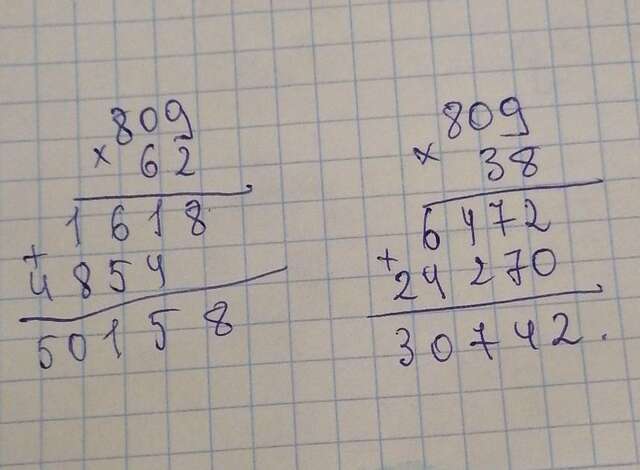 809
× 62
1618
+
4854
50158
809
× 38
6472
+
24270
30742.